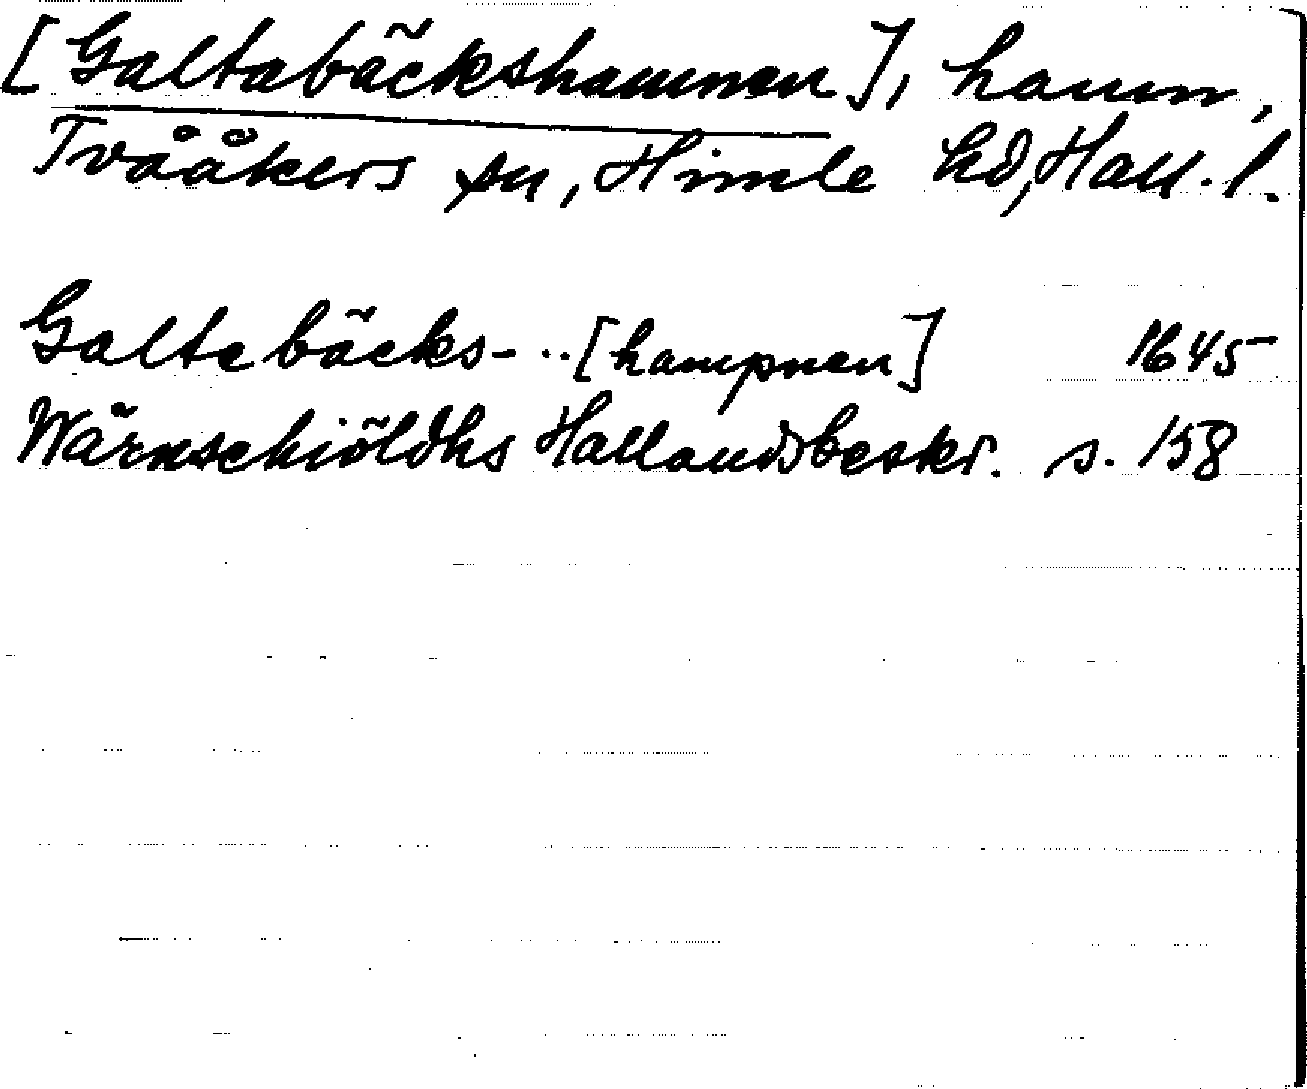 [Galtabäckshamnen], hamn,
Tvååkers sn, Himle hd, Hall. l.
Galtebäcks- ..[hampnen] 1645
Wärnschiöldhs Hallandsbeskr. s. 158